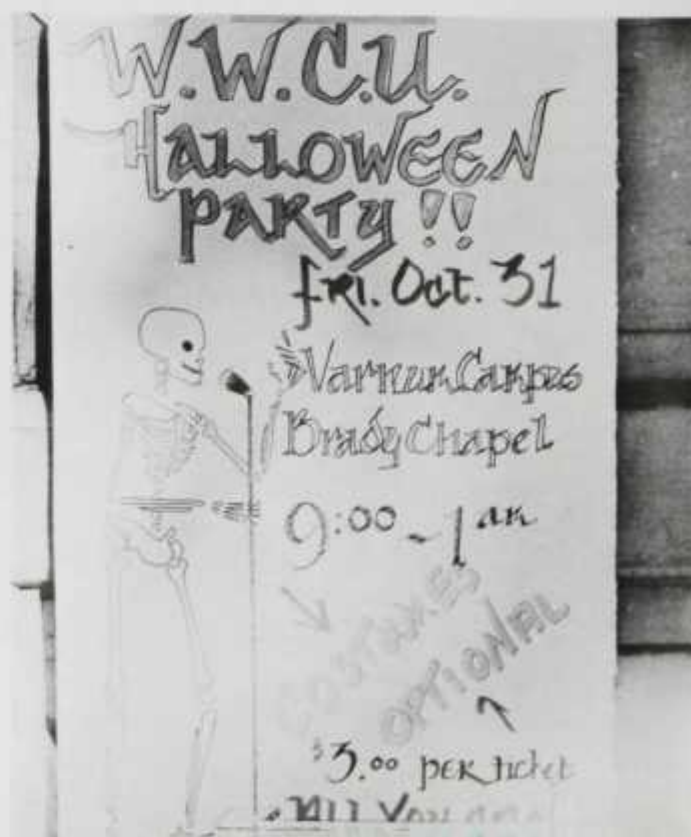 W.W.C.U.
HALLOWEEN
PARTY!!
FRI. Oct. 31
Varnum Campus
Brady Chapel
9:00 - 1 am
COSTUMES
OPTIONAL
$3.00 per ticket
All You